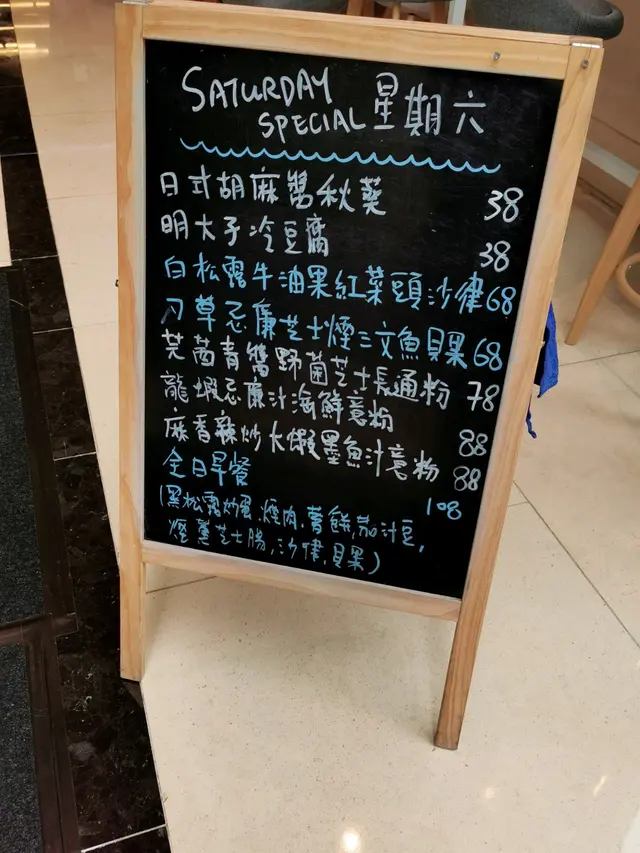 SATURDAY
SPECIAL 星期六
日式胡麻醬秋葵 38
明太子冷豆腐 38
白松露牛油果紅菜頭沙律 68
刁草忌廉芝士煙三文魚貝果 68
芫茜青醬野菌芝士長通粉 78
龍蝦忌廉汁海鮮意粉 88
麻香辣炒大墨魚汁意粉 88
全日早餐 108
(黑松露炒蛋,煙肉,薯餅,茄汁豆,
煙薰芝士腸,沙律,貝果)